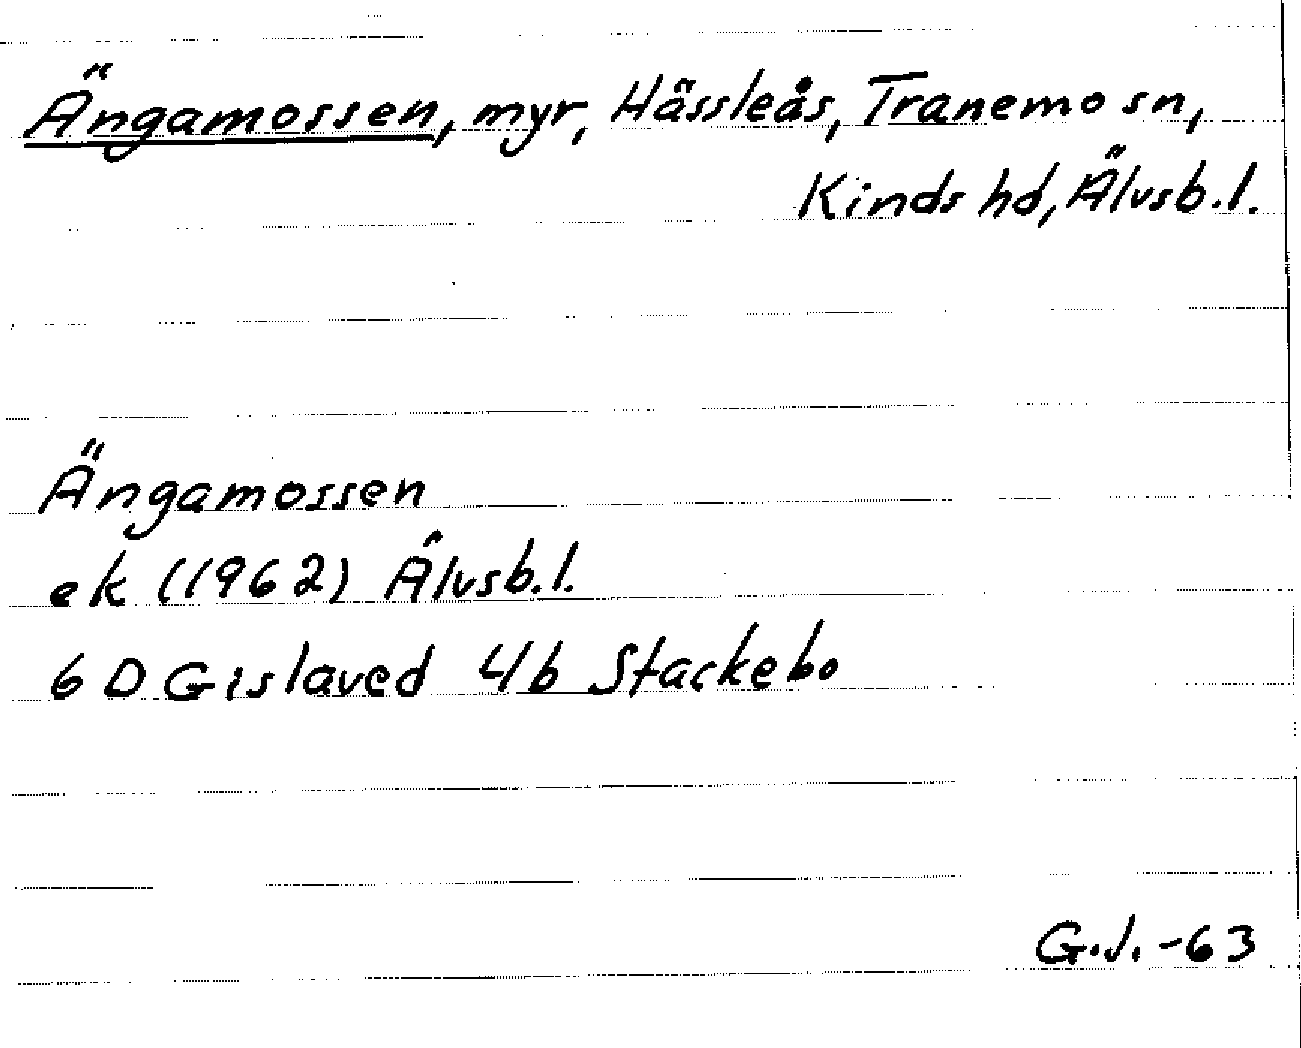 Ängamossen, myr, Hässleås, Tranemo sn,
Kinds hd, Älvsb.l.
Ängamossen
ek (1962) Älvsb.l.
6 D Gislaved 4b Stackebo
G.J. -63